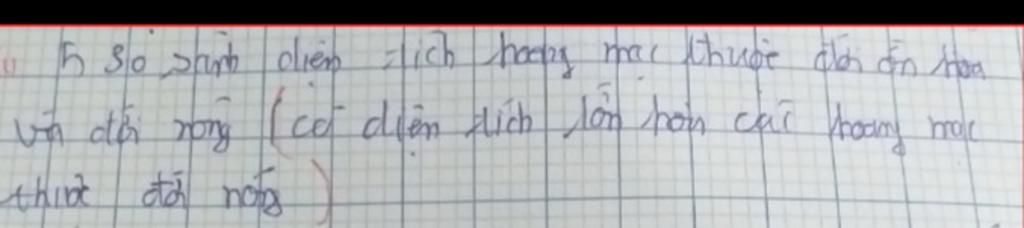 h so sánh diện tích hoang mạc thuộc đới ôn hòa
và đới nóng (có diện tích lớn hơn các hoang mạc
thuộc đới nóng)